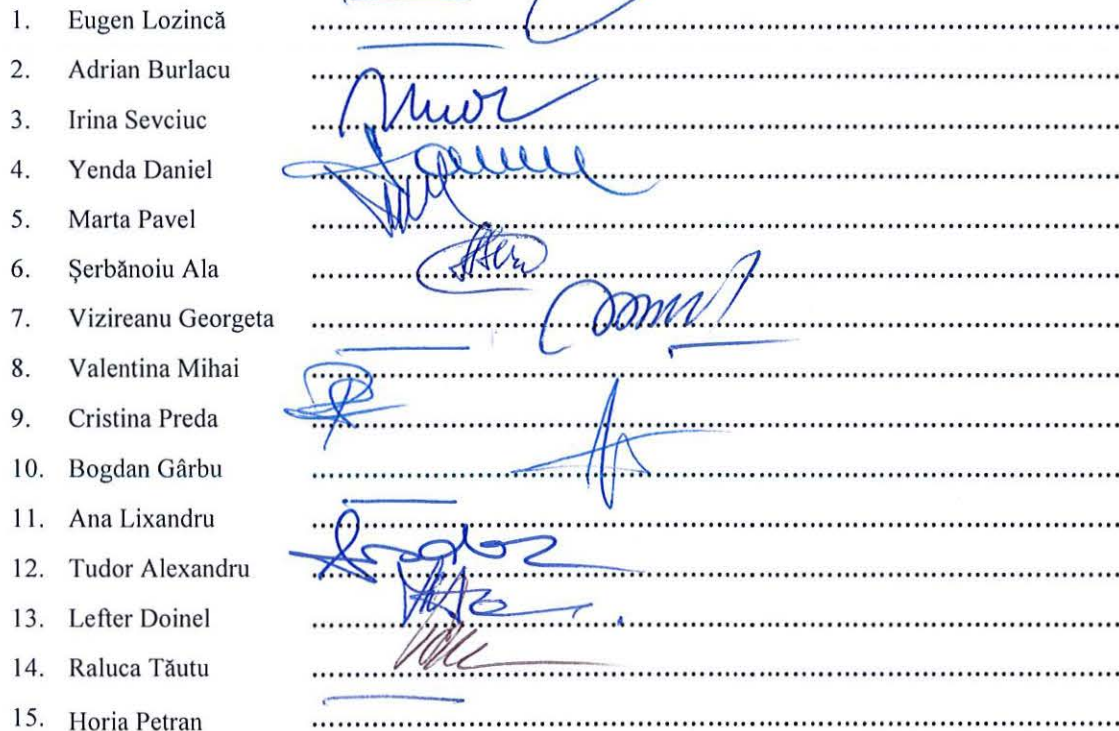 1. Eugen Lozincă
2. Adrian Burlacu
3. Irina Sevciuc
4. Yenda Daniel
5. Marta Pavel
6. Șerbănoiu Ala
7. Vizireanu Georgeta
8. Valentina Mihai
9. Cristina Preda
10. Bogdan Gârbu
11. Ana Lixandru
12. Tudor Alexandru
13. Lefter Doinel
14. Raluca Tăutu
15. Horia Petran